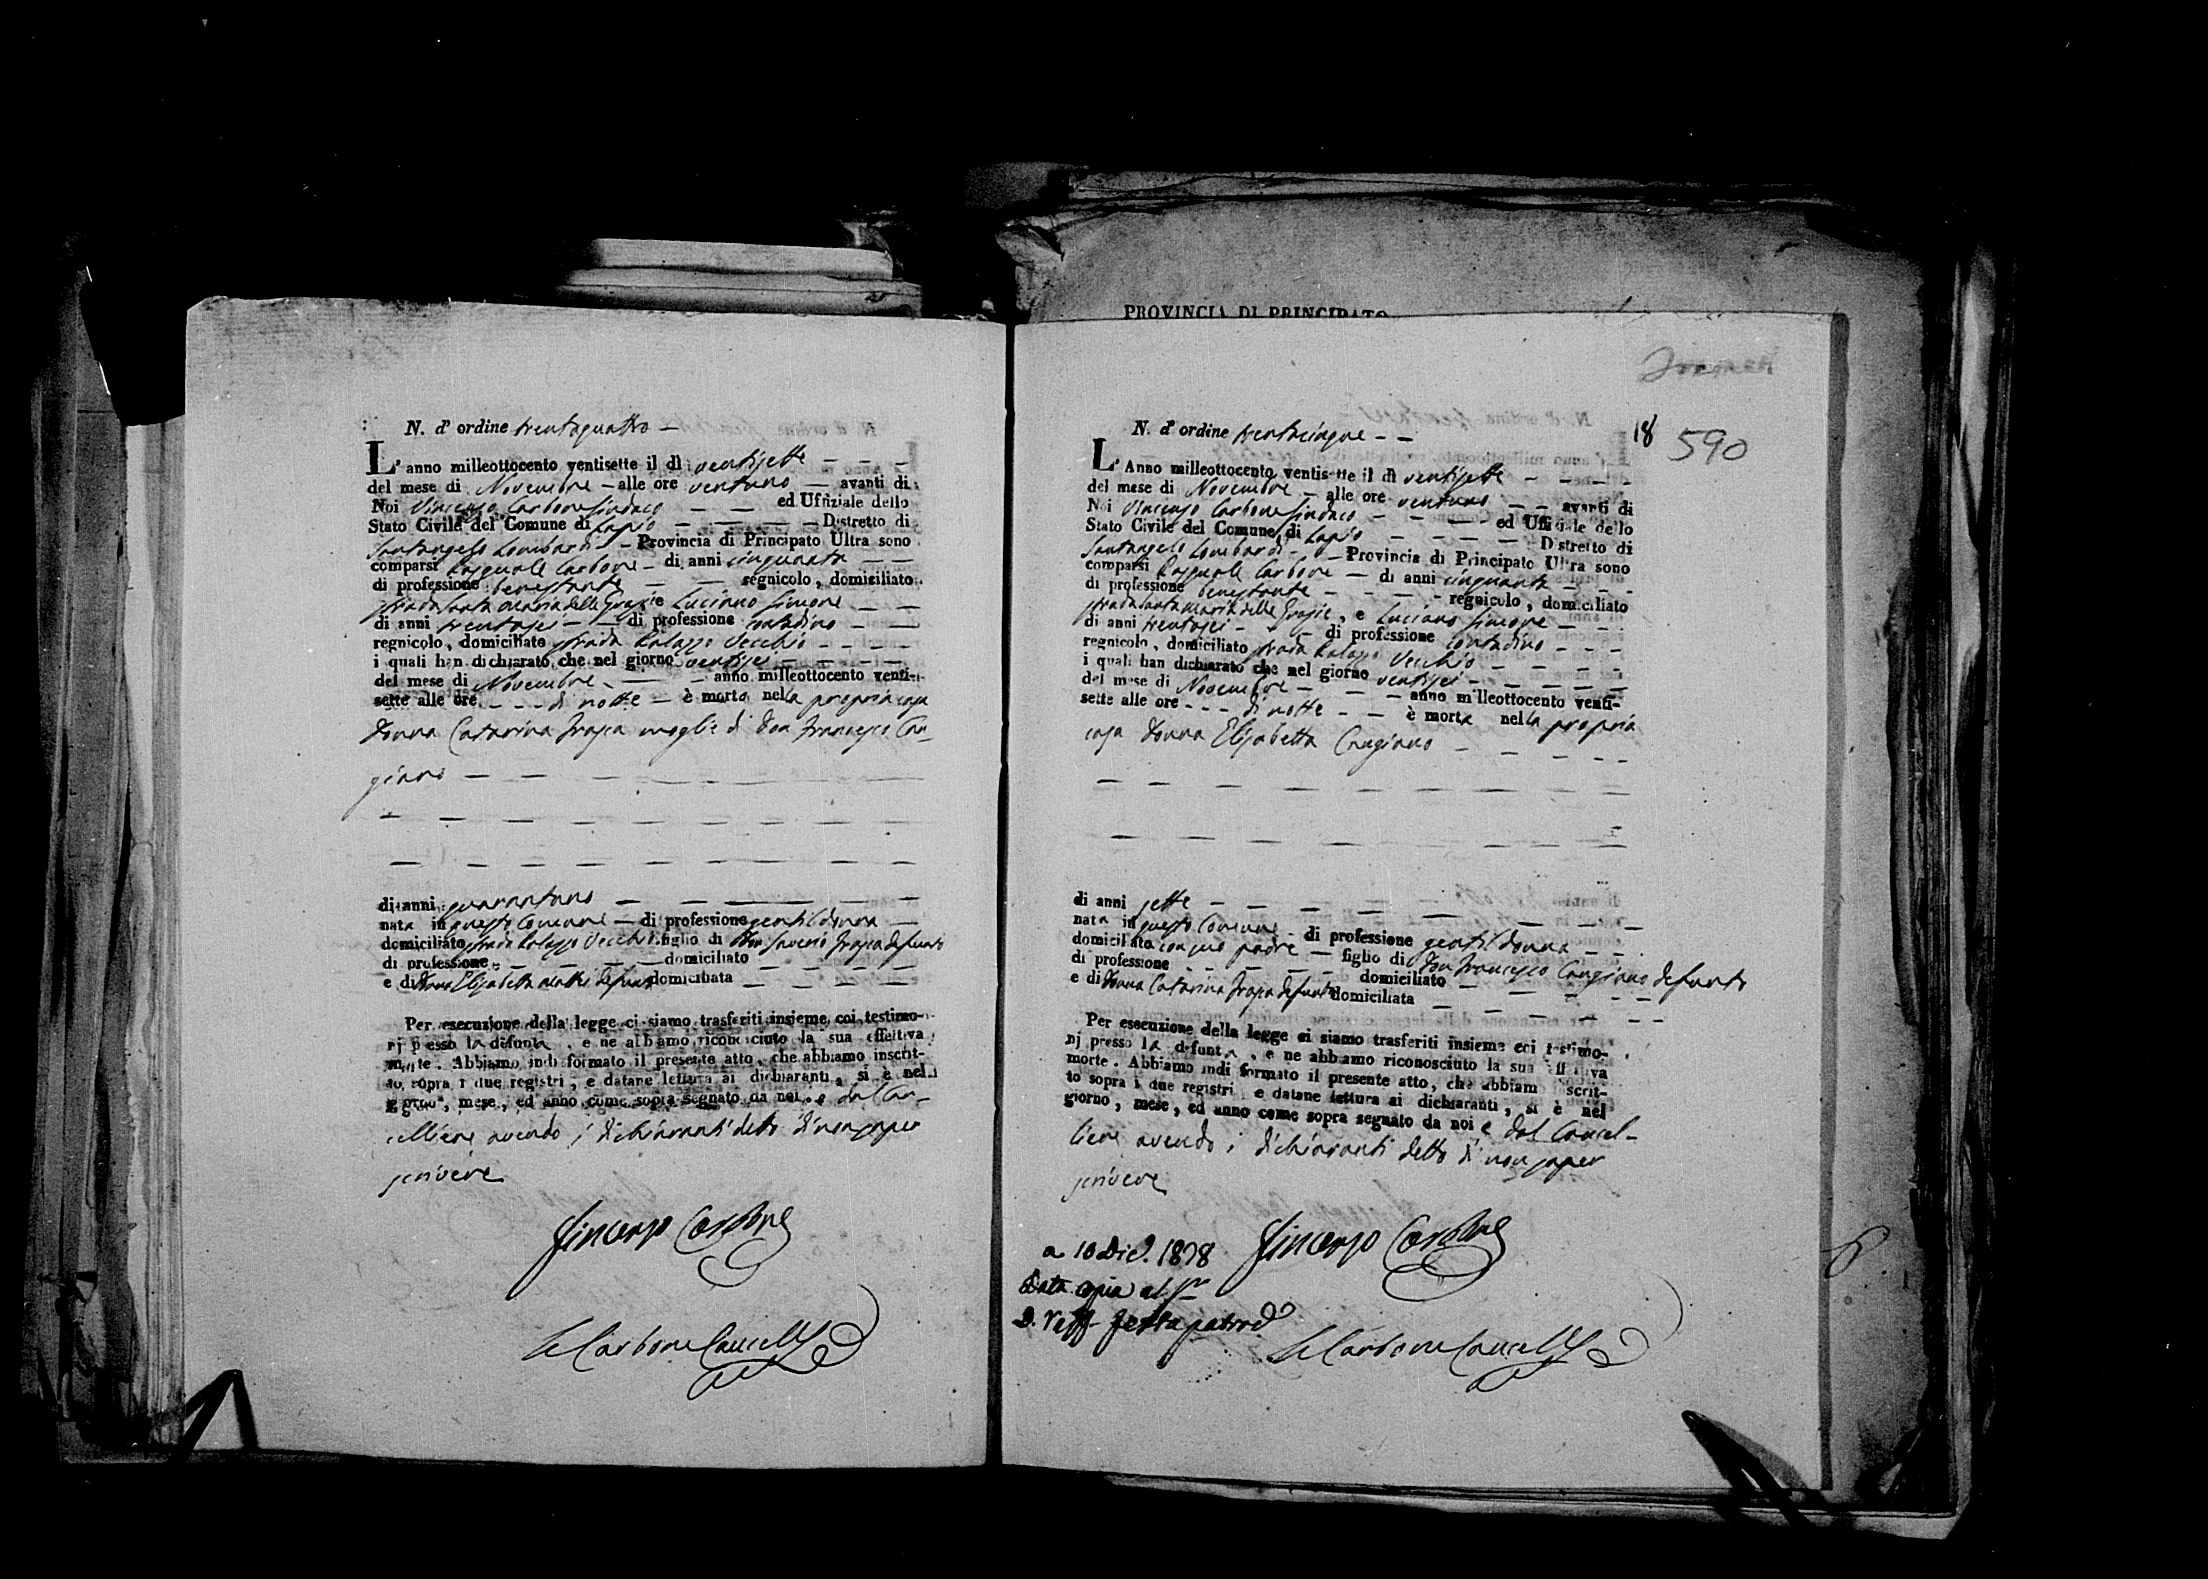 PROVINCIA DI PRINCIPATO
N. d' ordine trentaquattro —
L' anno milleottocento ventisette il dì ventisette — — —
del mese di Novembre — alle ore ventuno — avanti di
Noi Vincenzo Carbone Sindaco — — ed Uffiziale dello
Stato Civile del Comune di Lapio — — — — Distretto di
Santangelo Lombardi — — Provincia di Principato Ultra sono
comparsi Pasquale Carbone — di anni cinquanta — —
di professione benestante — — regnicolo, domiciliato
strada Santa Maria delle Grazie e Luciano Simone — —
di anni trentasei — — di professione contadino — —
regnicolo, domiciliato strada Palazzo Vecchio — — — —
i quali han dichiarato che nel giorno ventisei — — — —
del mese di Novembre — — — anno milleottocento venti-
sette alle ore — — — di notte — è morta nella propria casa
Donna Catarina moglie di Don Francesco Can-
giano — — — — — — — —
di anni quarantuno — — — — —
nata in questo Comune — di professione gentildonna —
domiciliato strada Palazzo Vecchio figlio di Don Saverio defunto
di professione — — — — domiciliato — — — —
e di Donna Elisabetta defunta domiciliata — — — —
Per esecuzione della legge ci siamo trasferiti insieme coi testimo-
nj presso la defunta, e ne abbiamo riconosciuto la sua effettiva
morte. Abbiamo indi formato il presente atto, che abbiamo inscrit-
to sopra i due registri, e datane lettura ai dichiaranti, si è nel
giorno, mese, ed anno come sopra segnato da noi e dal Can-
celliere avendo i dichiaranti detto di non saper
scrivere
Vincenzo Carbone
Carbone Cancell
18 590
N. d' ordine trentacinque — —
L' Anno milleottocento ventisette il dì ventisette — — — —
del mese di Novembre — alle ore ventuno — — avanti di
Noi Vincenzo Carbone Sindaco — — — — ed Uffiziale dello
Stato Civile del Comune di Lapio — — — — Distretto di
Santangelo Lombardi — — Provincia di Principato Ultra sono
comparsi Pasquale Carbone — di anni cinquanta — — —
di professione benestante — — — — regnicolo, domiciliato
strada Santa Maria delle Grazie, e Luciano Simone — — —
di anni trentasei — — — di professione contadino — — —
regnicolo, domiciliato strada Palazzo Vecchio — — — —
i quali han dichiarato che nel giorno ventisei — — — — —
del mese di Novembre — — — — anno milleottocento venti-
sette alle ore — — — di notte — — è morta nella propria
casa Donna Elisabetta Cangiano — — — — — —
di anni sette — — — — — — —
nata in questo Comune — di professione gentildonna — —
domiciliato con suo padre — figlio di Don Francesco Cangiano defunto
di professione — — — — domiciliato — — — — —
e di Donna Catarina defunta domiciliata — — — — —
Per esecuzione della legge ci siamo trasferiti insieme coi testimo-
nj presso la defunta, e ne abbiamo riconosciuto la sua effettiva
morte. Abbiamo indi formato il presente atto, che abbiam inscrit-
to sopra i due registri e datane lettura ai dichiaranti, si è nel
giorno, mese, ed anno come sopra segnato da noi e dal Cancel-
liere avendo i dichiaranti detto di non saper
scrivere
Vincenzo Carbone
a 10 Dic. 1878
Data copia al Sr
D.
Carbone Cancell